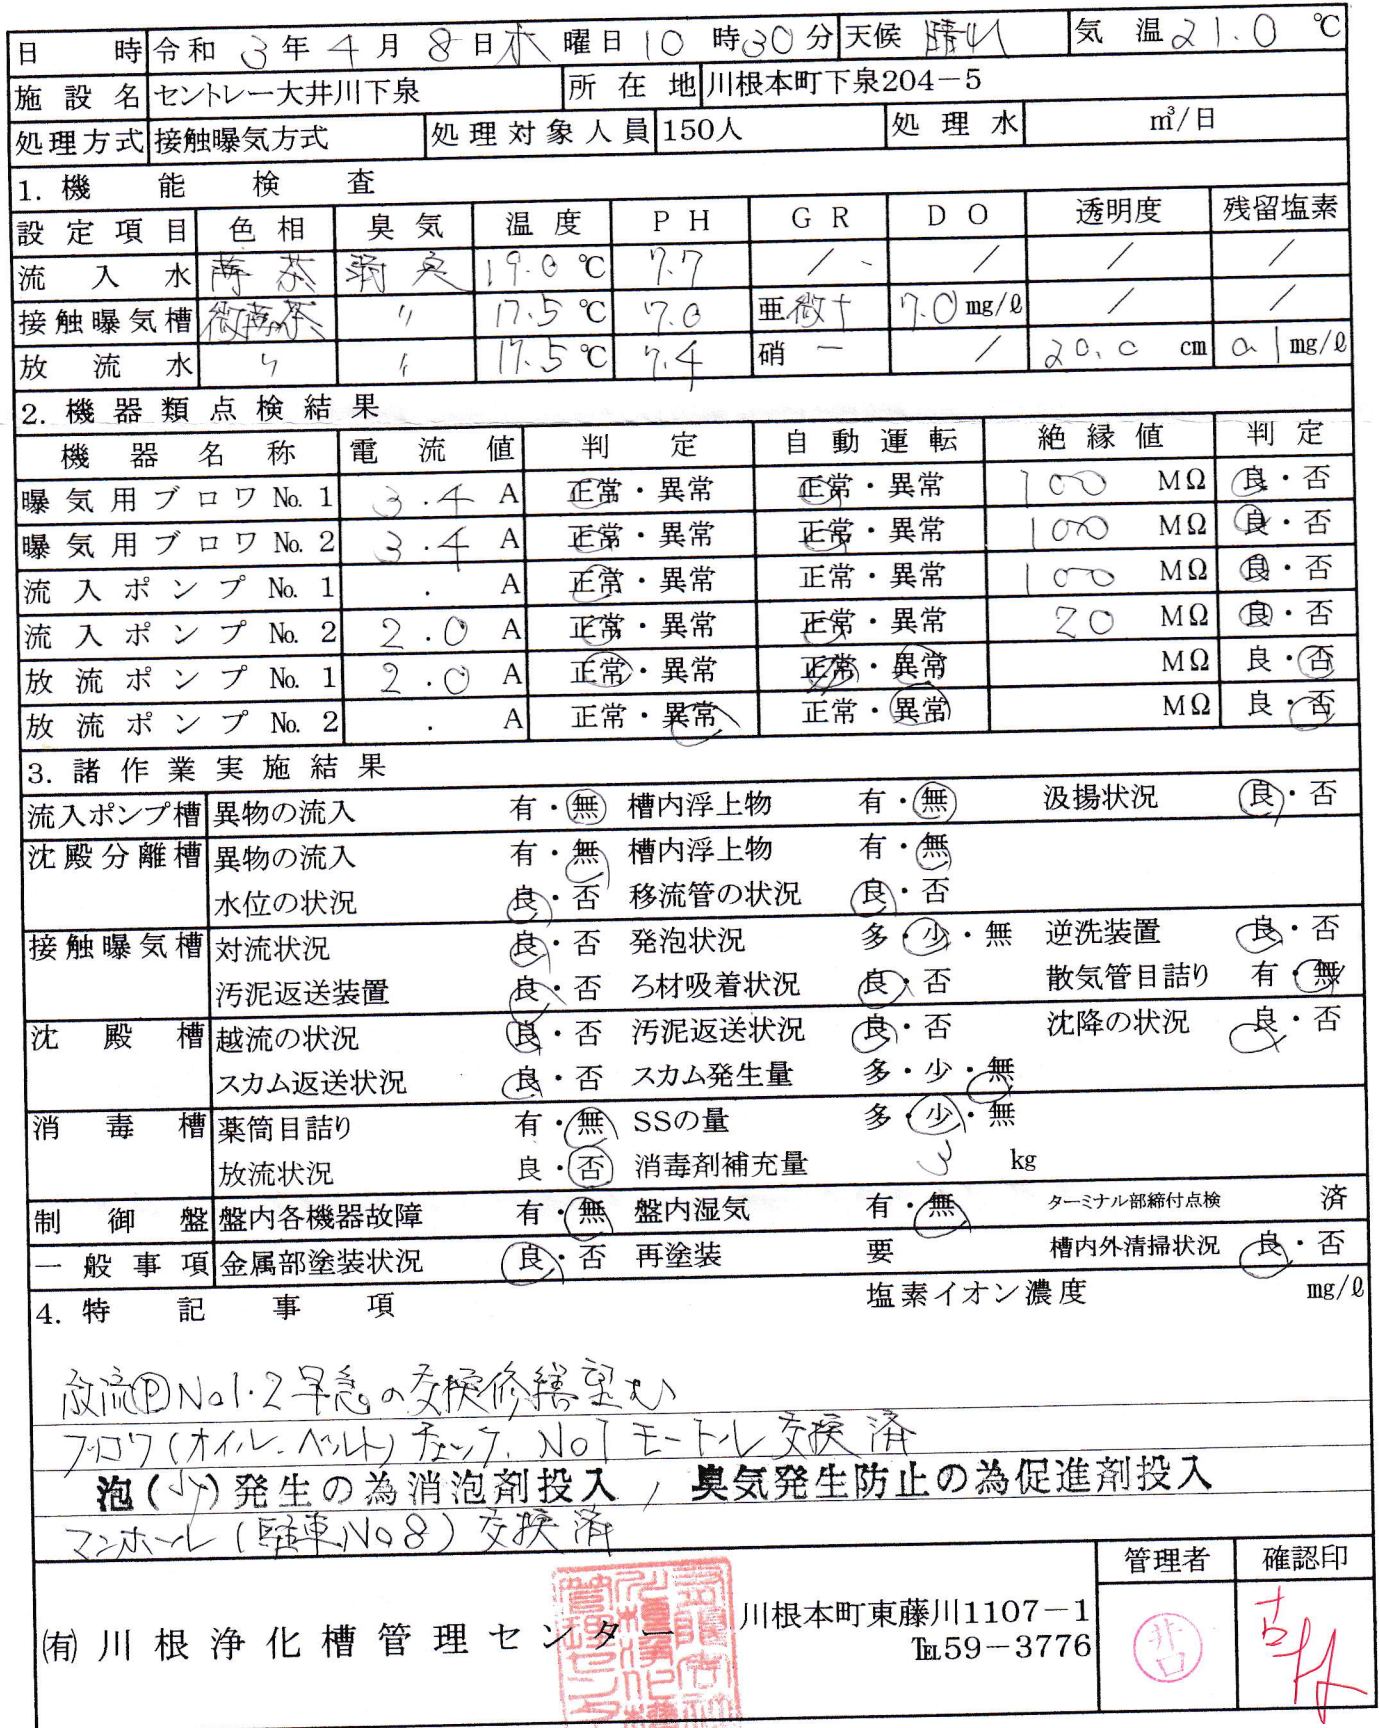 日時 令和 3年 4月 8日 木曜日 10時30分 天候 晴れ 気温 21.0 ℃
施設名 セントレー大井川下泉 所在地 川根本町下泉204-5
処理方式 接触曝気方式 処理対象人員 150人 処理水 ㎥/日
1. 機能検査
設定項目 色相 臭気 温度 PH GR DO 透明度 残留塩素
流入水 薄茶 弱臭 19.0 ℃ 7.7 / / / /
接触曝気槽 微薄茶 〃 17.5 ℃ 7.0 亜 微+ 7.0 mg/ℓ / /
放流水 〃 〃 17.5 ℃ 7.4 硝 − / 20.0 cm 0.1 mg/ℓ
2. 機器類点検結果
機器名称 電流値 判定 自動運転 絶縁値 判定
曝気用ブロワ№1 3.4 A 正常・異常 正常・異常 100 MΩ 良・否
曝気用ブロワ№2 3.4 A 正常・異常 正常・異常 100 MΩ 良・否
流入ポンプ№1 . A 正常・異常 正常・異常 100 MΩ 良・否
流入ポンプ№2 2.0 A 正常・異常 正常・異常 20 MΩ 良・否
放流ポンプ№1 2.0 A 正常・異常 正常・異常 MΩ 良・否
放流ポンプ№2 . A 正常・異常 正常・異常 MΩ 良・否
3. 諸作業実施結果
流入ポンプ槽 異物の流入 有・無 槽内浮上物 有・無 汲揚状況 良・否
沈殿分離槽 異物の流入 有・無 槽内浮上物 有・無
水位の状況 良・否 移流管の状況 良・否
接触曝気槽 対流状況 良・否 発泡状況 多・少・無 逆洗装置 良・否
汚泥返送装置 良・否 ろ材吸着状況 良・否 散気管目詰り 有・無
沈殿槽 越流の状況 良・否 汚泥返送状況 良・否 沈降の状況 良・否
スカム返送状況 良・否 スカム発生量 多・少・無
消毒槽 薬筒目詰り 有・無 SSの量 多・少・無
放流状況 良・否 消毒剤補充量 3 kg
制御盤 盤内各機器故障 有・無 盤内湿気 有・無 ターミナル部締付点検 済
一般事項 金属部塗装状況 良・否 再塗装 要 槽内外清掃状況 良・否
4. 特記事項 塩素イオン濃度 mg/ℓ
放流ⓅNo1・2 早急の交換修繕望む
ブロワ(オイル、ベルト)チェック、No1モートル交換済
泡(少)発生の為消泡剤投入 , 臭気発生防止の為促進剤投入
マンホール(駐車No8)交換済
管理者 確認印
㈲川根浄化槽管理センター 川根本町東藤川1107-1
℡59-3776
井口